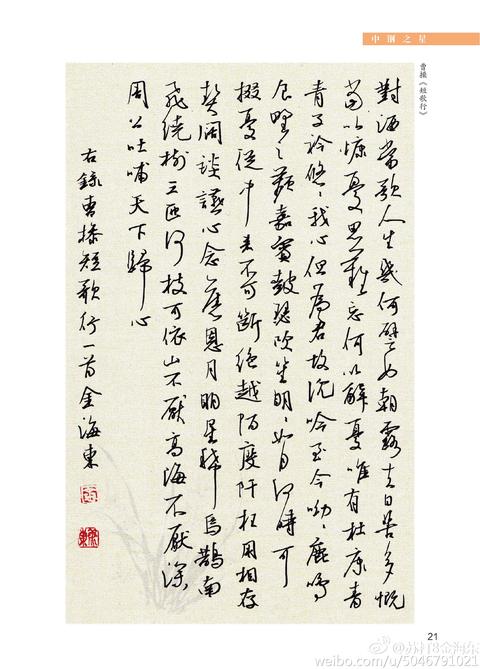 中钢之星
曹操《短歌行》
對酒當歌人生幾何譬如朝露去日苦多慨
當以慷憂思難忘何以解憂唯有杜康青
青子衿悠々我心但為君故沉吟至今呦々鹿鳴
食野之嘉賓鼓瑟吹笙明々如月何時可
掇憂從中來不可斷絕越陌度阡枉用相存
契闊談讌心念舊恩月明星稀烏鵲南
飛繞樹三匝何枝可依山不厭高海不厭深
周公吐哺天下歸心
右錄曹操短歌行一首金海東
21
金海东
weibo.com/u/5046791021